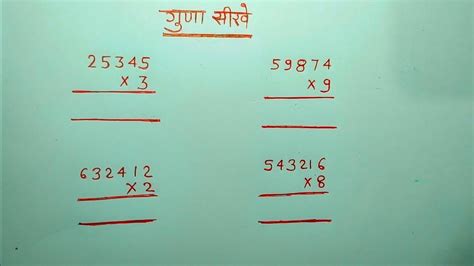 गुणा सीखे
25345
× 3
59874
× 9
632412
× 2
543216
× 8